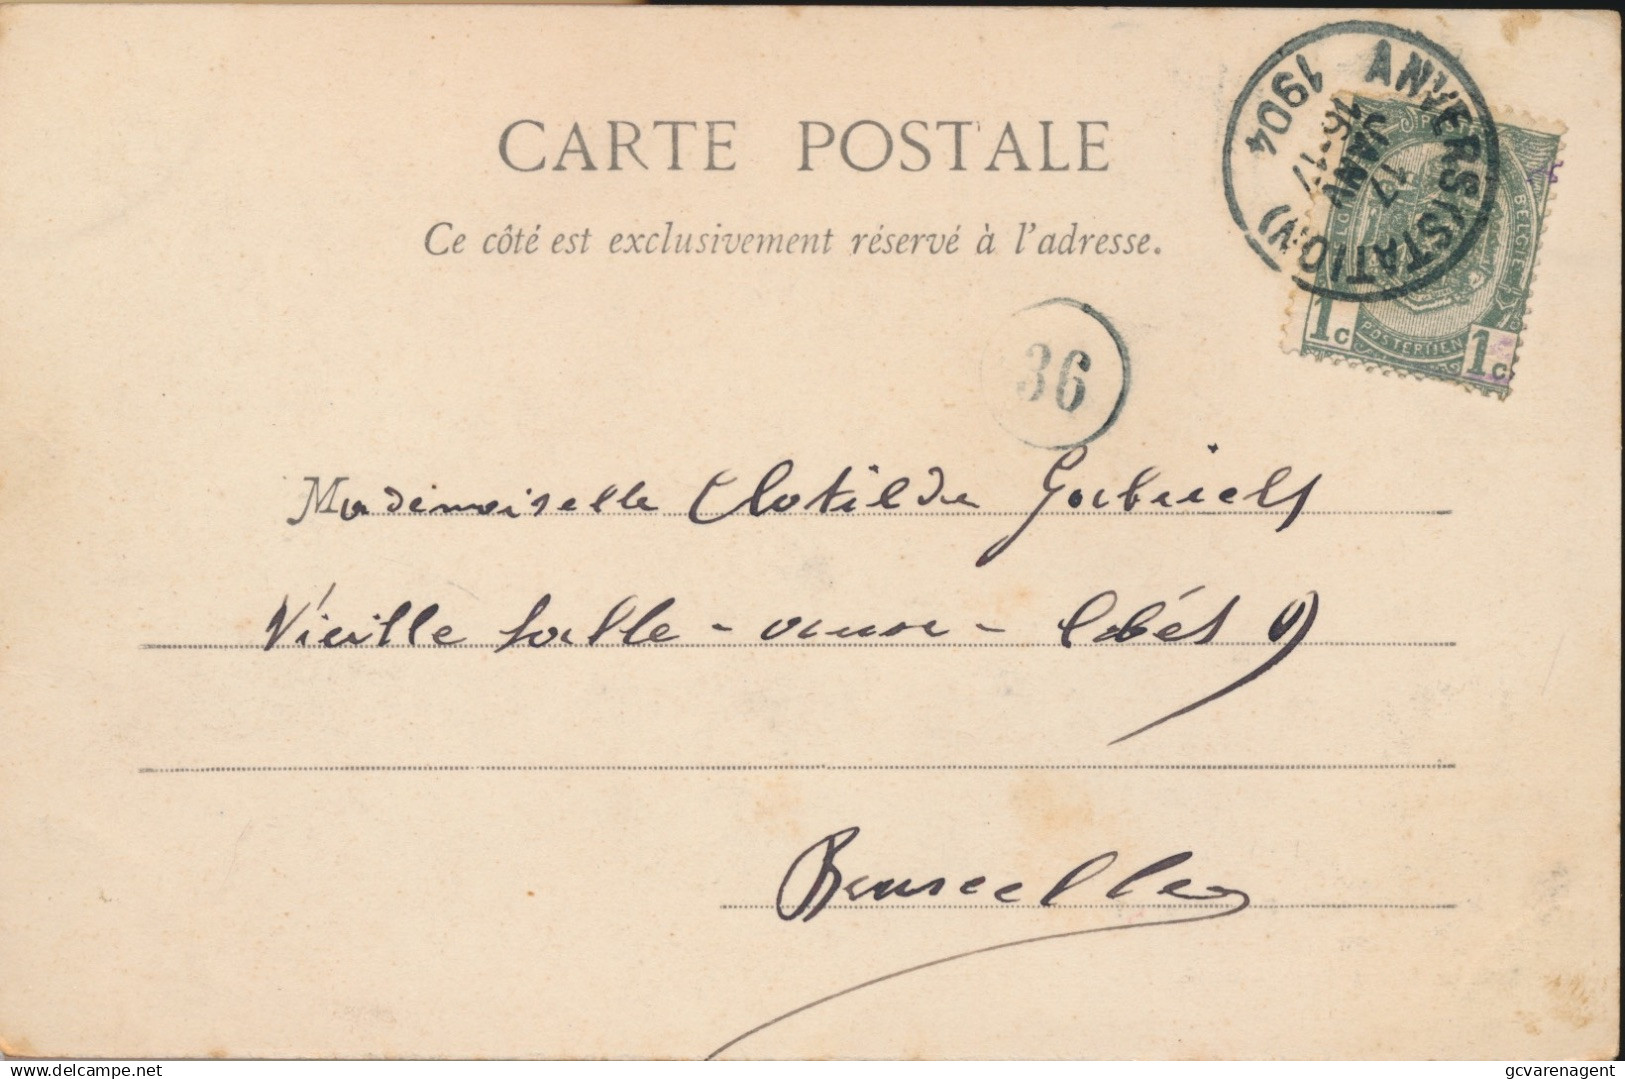 CARTE POSTALE
Ce côté est exclusivement réservé à l'adresse.
ANVERS (STATION)
16-17
17
JANV
1904
POSTES
BELGIQUE
BELGIË
POSTERIJEN
1c 1c
36
Mademoiselle Clotilde Gabriels
Vieille halle - aux - blés 9
Bruxelles
delcampe.net
gcvarenagent